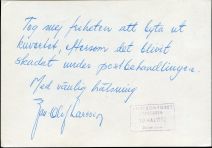 Tog mig friheten att byta ut
kuvertet, eftersom det blivit
skadat under postbehandlingen.
Med vänlig hälsning
Jan Olof Larsson